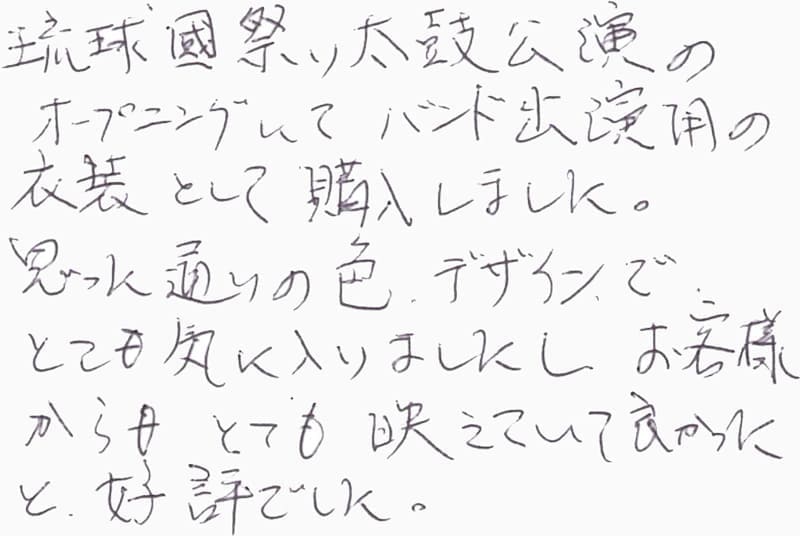 琉球國祭り太鼓公演の
オープニングにて バンド出演用の
衣装として購入しました。
思った通りの色、デザインで、
とても気に入りましたし、お客様
からも とても 映えていて良かった
と、好評でした。